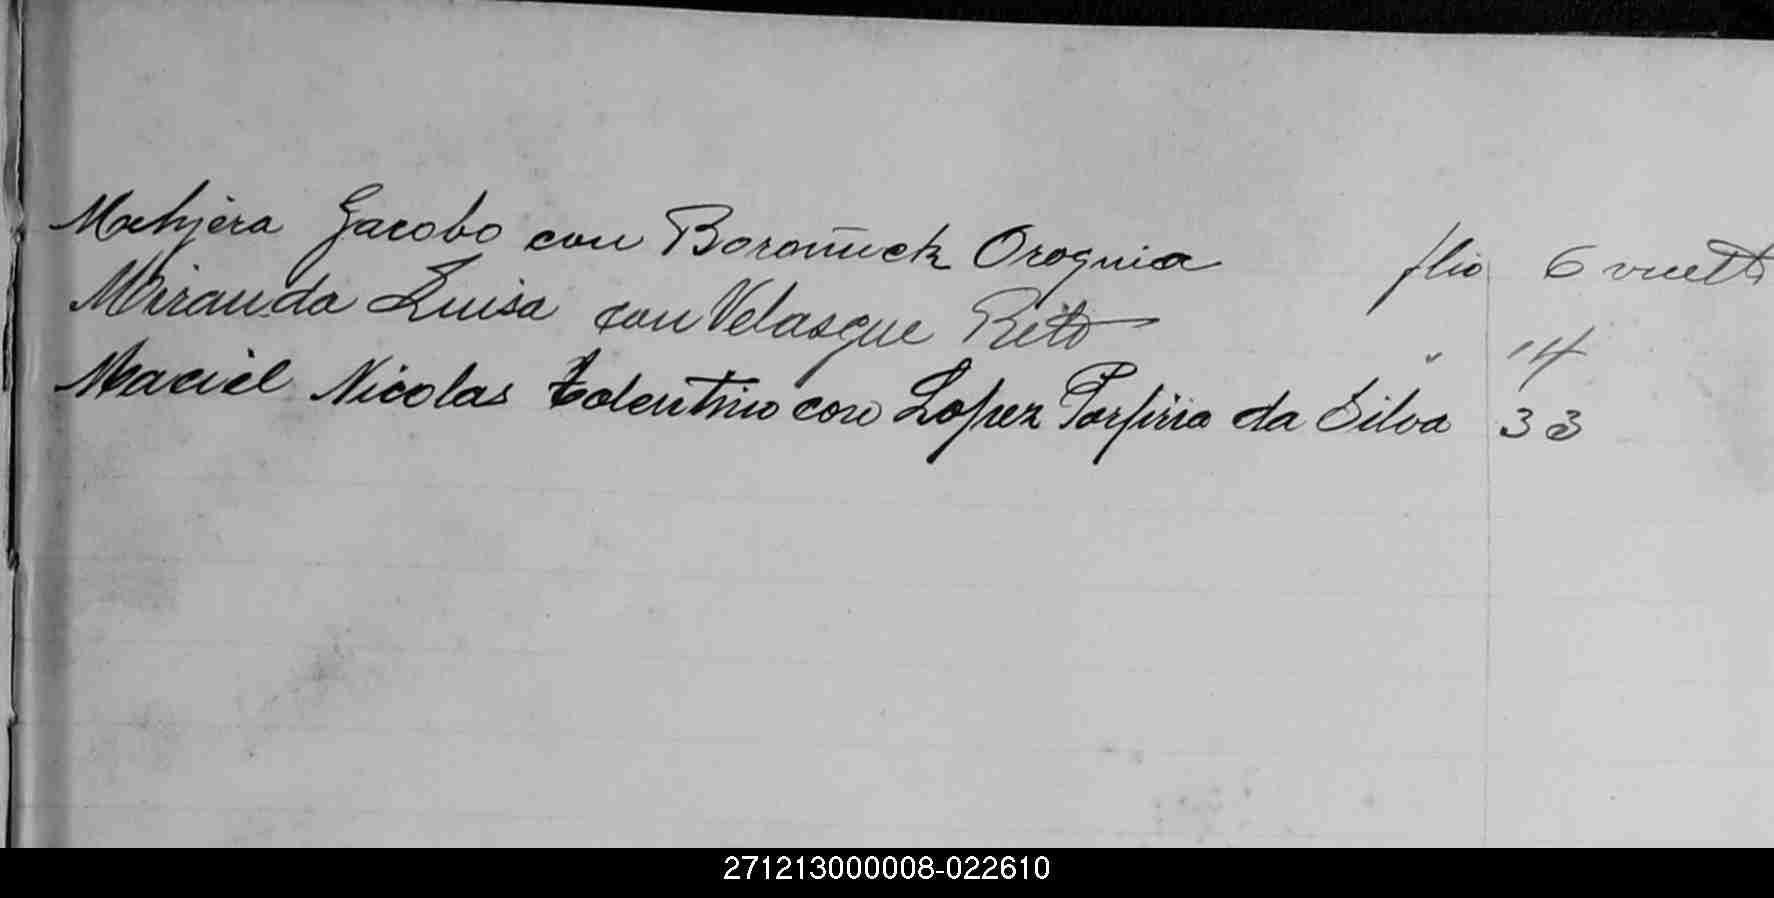 Mahjera Jacobo con Boromuck Orognia flio 6 vuelto
Miranda Luisa con Velasque Rito " 14
Maciel Nicolas Tolentino con Lopez Porfiria da Silva 33
271213000008-022610